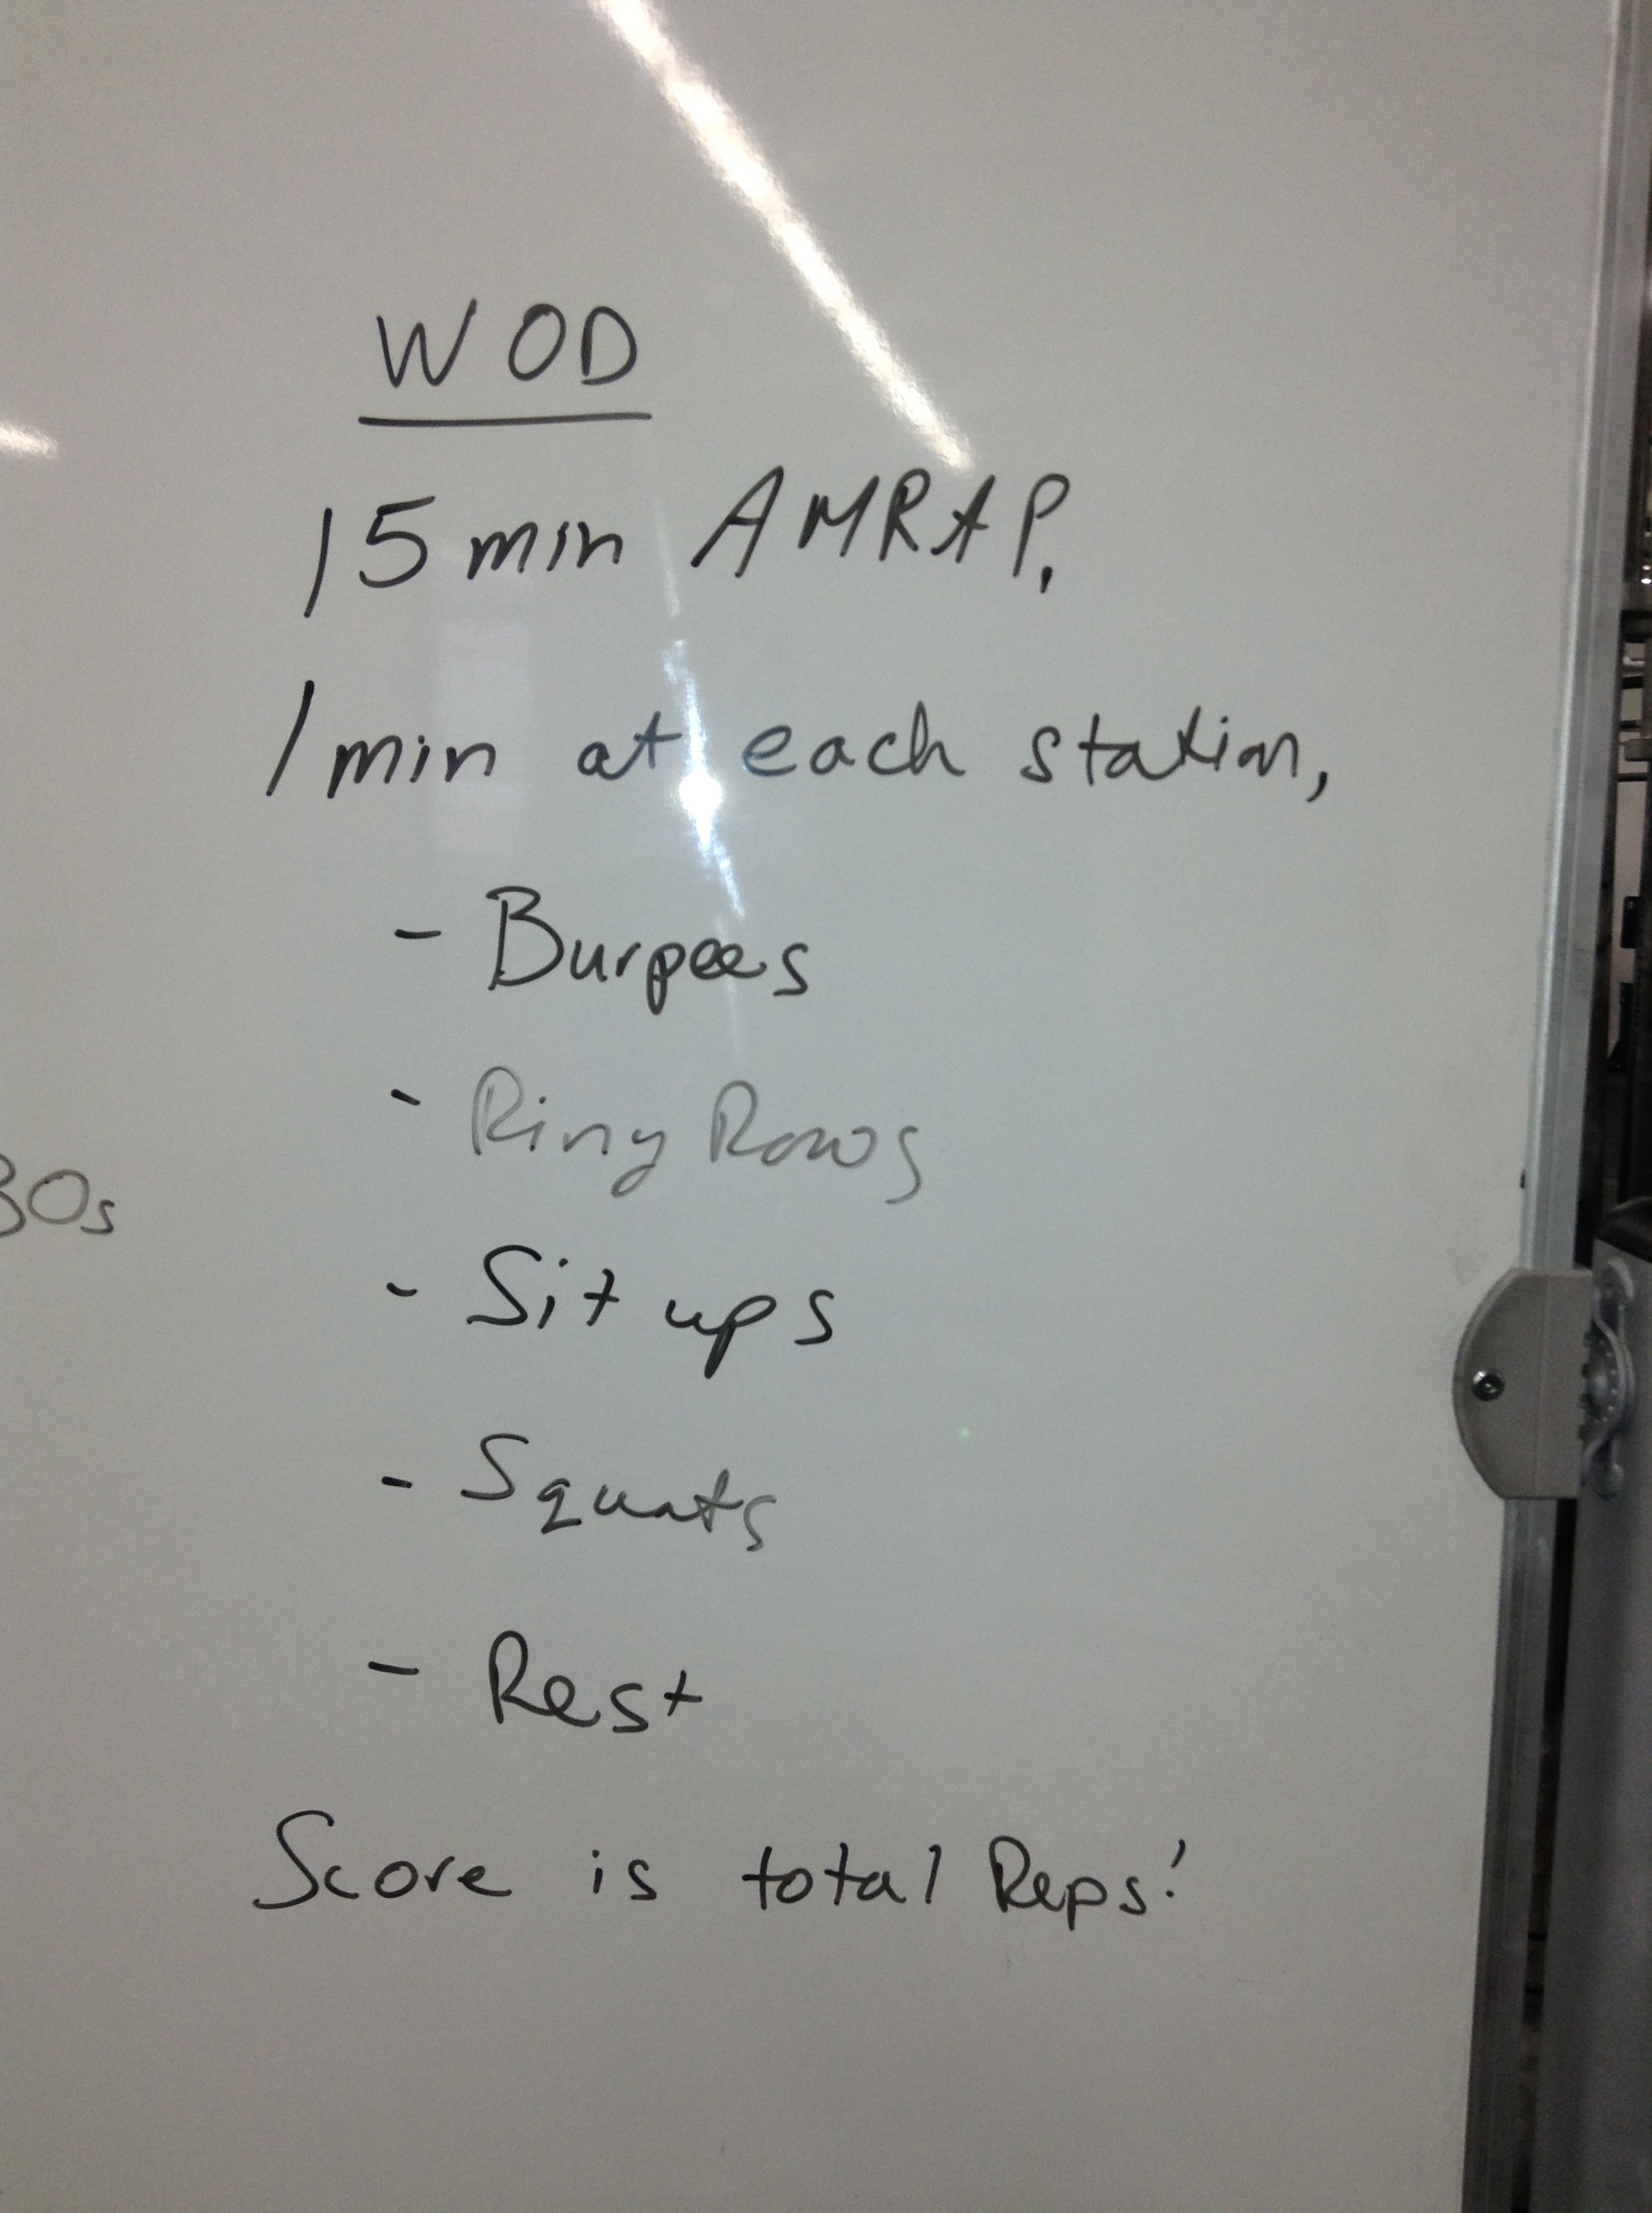 WOD
15 min AMRAP.
1 min at each station,
- Burpees
- Ring Rows
30s
- Sit ups
- Squats
- Rest
Score is total Reps!